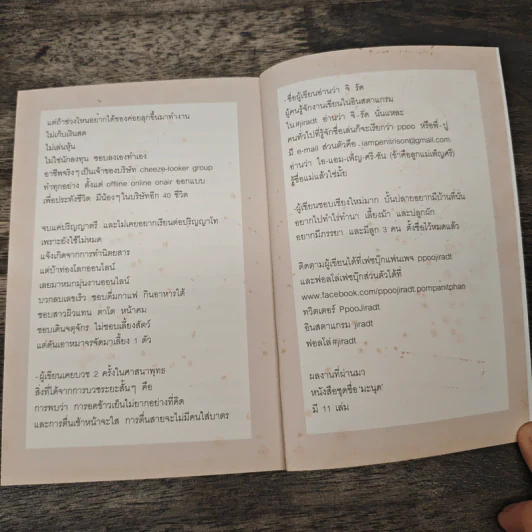 แต่ถ้าช่วงไหนอยากได้ของค่อยลุกขึ้นมาทำงาน
ไม่เก็บเงินสด
ไม่เล่นหุ้น
ไม่ใช่นักลงทุน ชอบลงเองทำเอง
อาชีพจริงๆเป็นเจ้าของบริษัท cheeze-looker group
ทำทุกอย่าง ตั้งแต่ offline online onair ออกแบบ
เพื่อประทังชีวิต มีน้องๆในบริษัทอีก 40 ชีวิต
จบแค่ปริญญาตรี และไม่เคยอยากเรียนต่อปริญญาโท
เพราะยังใช้ไม่หมด
แจ้งเกิดจากการทำนิตยสาร
แต่บ้าท่องโลกออนไลน์
เลยมาหมกมุ่นงานออนไลน์
บวกลบเลขเร็ว ชอบดื่มกาแฟ กินอาหารใต้
ชอบสาวผิวแทน ตาโต หน้าคม
ชอบเดินจตุจักร ไม่ชอบเลี้ยงสัตว์
แต่ดันเอาหมาจรจัดมาเลี้ยง 1 ตัว
-ผู้เขียนเคยบวช 2 ครั้งในศาสนาพุทธ
สิ่งที่ได้จากการบวชระยะสั้นๆ คือ
การพบว่า การอดข้าวเย็นไม่ยากอย่างที่คิด
และการตื่นเช้าหน้าจะใส การตื่นสายจะไม่มีคนใส่บาตร
-ชื่อผู้เขียนอ่านว่า จิ รัด
ผู้คนรู้จักงานเขียนในอินสตาแกรม
ใน#jiradt อ่านว่า จิ-รัด นั่นแหละ
คนทั่วไปที่รู้จักชื่อเล่นก็จะเรียกว่า ppoo หรือพี่-ปู
มี e-mail ส่วนตัวคือ iampensrison@gmail.com
อ่านว่า ไอ-แอม-เพ็ญ-ศรี-ซัน (ข้าคือลูกแม่เพ็ญศรี)
รู้ชื่อแม่แล้วใช่มั้ย
-ผู้เขียนชอบเชียงใหม่มาก บั้นปลายอยากมีบ้านที่นั่น
อยากไปทำไร่ทำนา เลี้ยงม้า และปลูกผัก
อยากมีภรรยา และมีลูก 3 คน ตั้งชื่อไว้หมดแล้ว
ติดตามผู้เขียนได้ที่เฟซบุ๊กแฟนเพจ ppoojiradt
และฟอลโล่เฟซบุ๊กส่วนตัวได้ที่
www.facebook.com/ppoojiradt.pornpanitphan
ทวิตเตอร์ PpooJiradt
อินสตาแกรม jiradt
ฟอลโล่ #jiradt
ผลงานที่ผ่านมา
หนังสือชุดชื่อ 'มะนุด'
มี 11 เล่ม